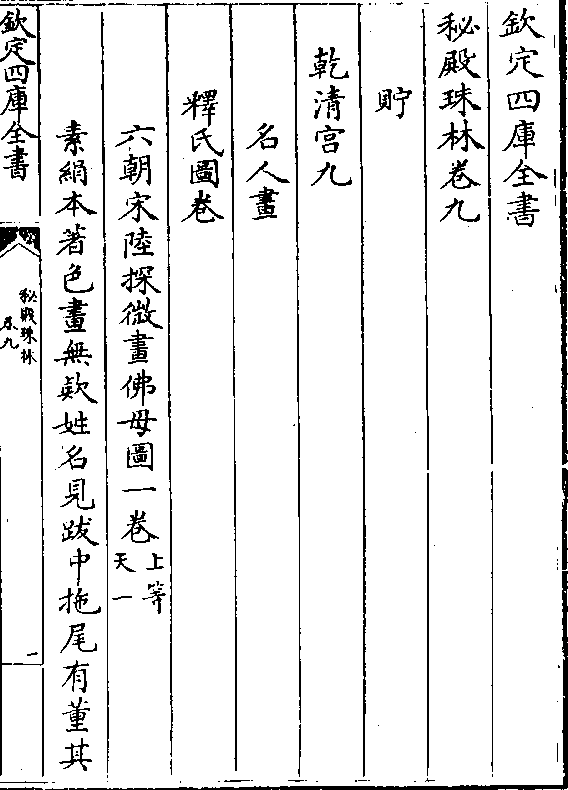 欽定四庫全書
秘殿珠林卷九
貯
乾清宫九
名人畫
釋氏圖卷
六朝宋陸探微畫佛母圖一卷上等
天一
素絹本著色畫無欵姓名見跋中拖尾有董其
欽定四庫全書
秘殿珠林
卷九
一